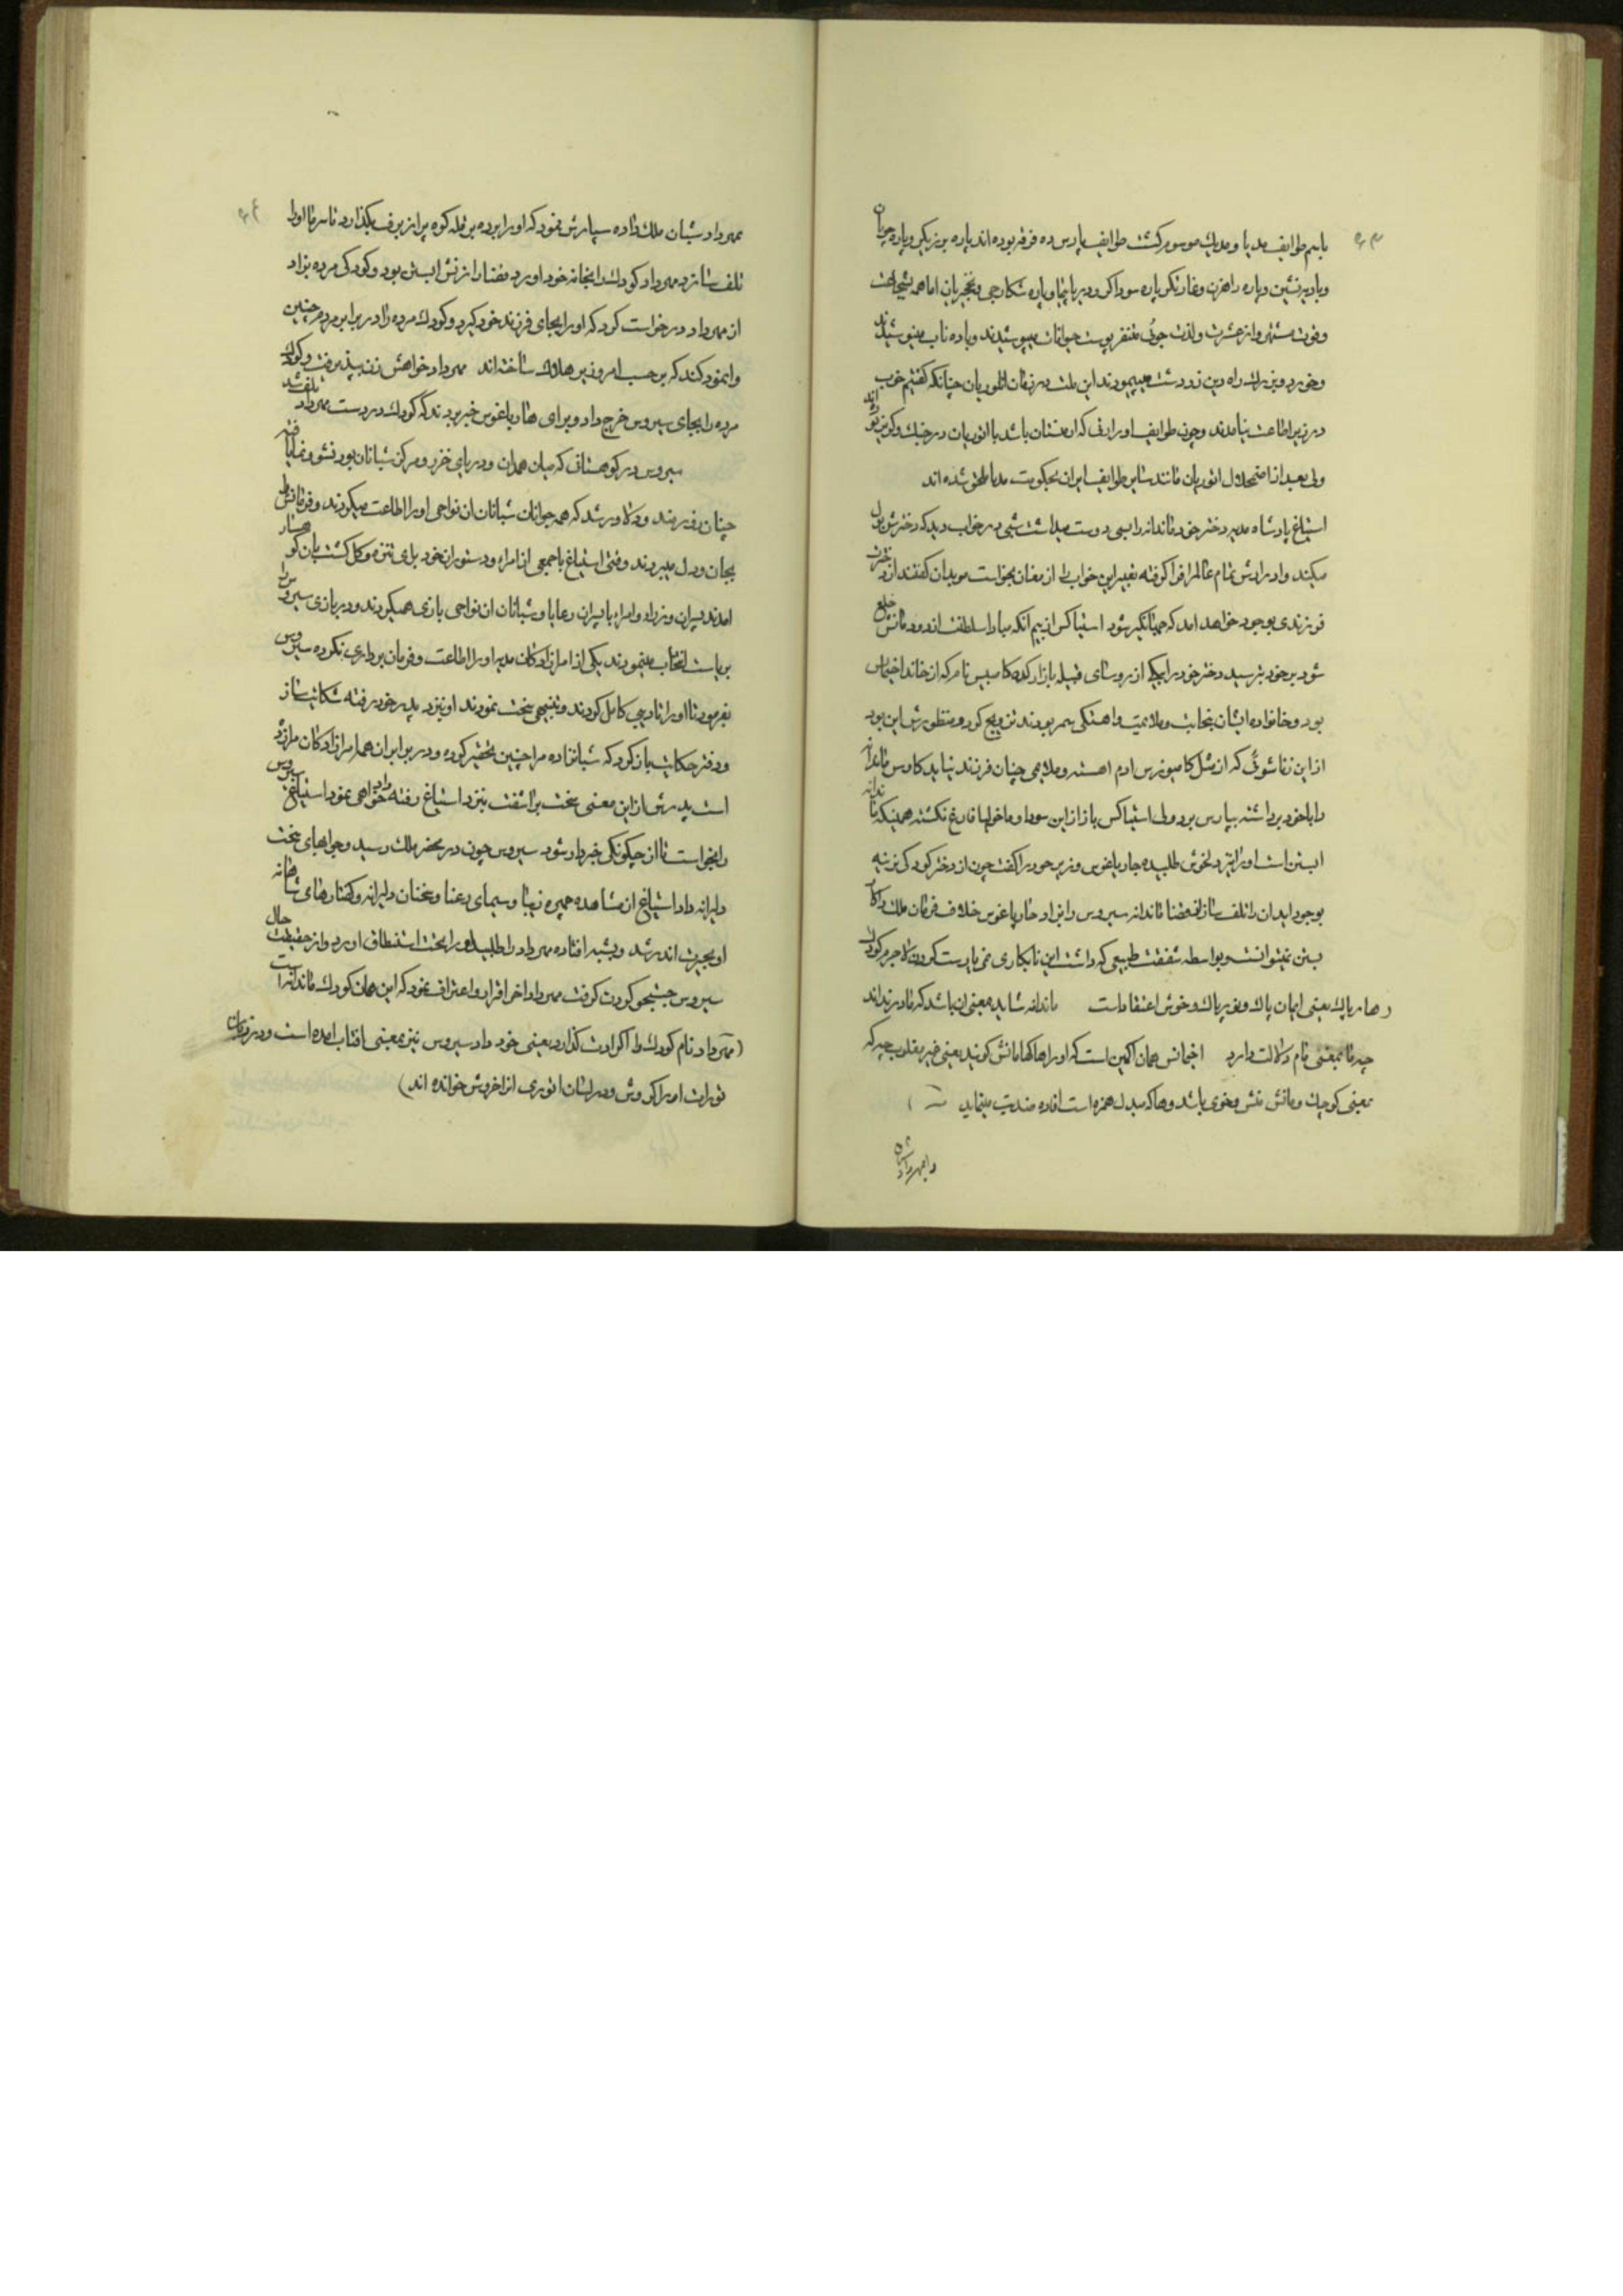 ۶۳
باسم طوایف مدیا و مدیك موسوم كشت طوایف پارس ده فرقه بوده اند پاره برزیكر و پاره چوپان
و بادیه نشین و پاره راهزن و غارتكر و پاره سوداكر و دریاپیما و پاره شكارچی و نخچیربان اما همه بشجاعت
و قوت مشتهر و از عشرت و لذت جوئی متنفر پوست حیوانات میپوشیدند و باده ناب مینوشیدند
و خورد و بزرك راه دین زردشت میپیمودند این ملت در زمان اثوریان چنانكه كفتیم خوب
در زیر اطاعت نیامدند و چون طوایف اورارتی كه ارمنستان باشد با اثوریان در جنك و كریز بوده اند
ولی بعد از اضمحلال اثوریان مانند سایر طوایف ایران بحكومت مدیا ملحق شده اند
استیاغ پادشاه مدیه دختر خود ماندانه را بسی دوست میداشت شبی در خواب دید كه دخترش بول
میكند و ادرارش تمام عالم را فرا كرفته تعبیر این خواب را از مغان بخواست موبدان كفتند از دخترت
فرزندی بوجود خواهد امد كه جهانكیر شود استیاكس از بیم آنكه مبادا سلطنت از دودمانش خلع
شود بر خود بترسید دختر خود را بیكی از روسای قبیله بازارگده كامبیس نام كه از خاندا اخیماس
بود و خانواده ایشان بنجابت و ملایمت و اهستكی سمر بودند تزویج كرد و منظورش این بود
از این زناشوئی كه از مثل كامبوزس ادم اهسته و ملایمی چنان فرزند نیاید كاوس ماندانه
را با خود برداشته بپارس برد ولی استیاكس باز از این سودا و ماخولیا فارغ نكشته همینكه ماندانه
ابستن است او را نزد خویش طلبیده هارپاغوس وزیر خود را كفت چون از دختر كودكی نرینه
بوجود اید ان را تلف ساز قضا ماندانه سیروس را بزاد هارپاغوس خلاف فرمان ملك را كار
بستن نمیتوانست و بواسطه شفقت طبیعی كه داشت این نابكاری نمی یارست كردن لاجرم كودك
(هارپاك یعنی ایمان پاك و نور پاك و خوش اعتقاد است ماندانه شاید معنی ان باشد كه مادر نداند
چه مانا بمعنی نام دلالت دارد اخمانس همان اكمین است كه او را هاكامانش كویند یعنی خیر مقلوب چه كه
بمعنی كوچك و مانش منش و خوی باشد و ها كه مبدل همزه است افاده ضدیت مینماید )
را بمهرداد شبان
۶۴
بمهرداد شبان ملك داده سپارش نمود كه او را برده بر قله كوه پر از برف بكذارد تا سرما او را
تلف سازد مهرداد كودك را بخانه خود اورد قضا را زنش ابستن بود و كودكی مرده بزاد
از مهرداد درخواست كرد كه او را بجای فرزند خود كیرد و كودك مرده را در برابر مردم چنین
وانمود كند كه برحسب امر وزیر هلاك ساخته اند مهرداد خواهش زن بپذیرفت و كودك
مرده را بجای سیروس خرج داد و برای هارپاغوس خبر بردند كه كودك در دست مهرداد تلف شد
سیروس در كوهستانی كه میان همدان و دریای خزر و مركز شبانان بود نشو و نما یافته
چنان زورمند و دلاور شد كه همه جوانان شبانان ان نواحی او را اطاعت میكردند و فرمانش را
بجان و دل میبردند وقتی استیاغ با جمعی از امراء و دستوران خود برای تنزه و كلكشت بان كوهسار
امدند پسران وزراء و امراء با پسران رعایا و شبانان ان نواحی بازی همیكردند و در بازی سیروس را
بریاست انتخاب مینمودند یكی از امرازادكان مدیه او را اطاعت و فرمان برداری نكرده سیروس
بفرمود تا او را تادیبی كامل كردند و تنبیهی سخت نمودند او نزد پدر خود رفته شكایت ساز
و دفتر حكایت باز كرد كه شبانزاده مرا چنین تحقیر كرده و در برابر ان همه امرازادكان مرا زده
است پدرش از این معنی سخت براشفت نزد استیاغ رفته داد خواهی نمود استیاغ سیروس
را بخواست تا از چكونكی خبردار شود سیروس چون در محضر ملك رسید و جوابهای سخت
دلیرانه داد استیاغ از مشاهده چهره زیبا و سیمای رعنا و سخنان دلیرانه و كفتارهای شاهانه
او بحیرت اندر شد و بشبهه افتاده مهرداد را طلبیده و را بتحت استنطاق اورد و از حقیقت حال
سیروس جستجو كردن كرفت مهرداد اخر اقرار و اعتراف نمود كه این همان كودك ماندانه است
(مهرداد نام كودك را اكرادت كذارد یعنی خود داد سیروس نیز بمعنی افتاب امده است و در زمان
تورات او را كروش و در لسان اثوری ازاخروش خوانده اند)